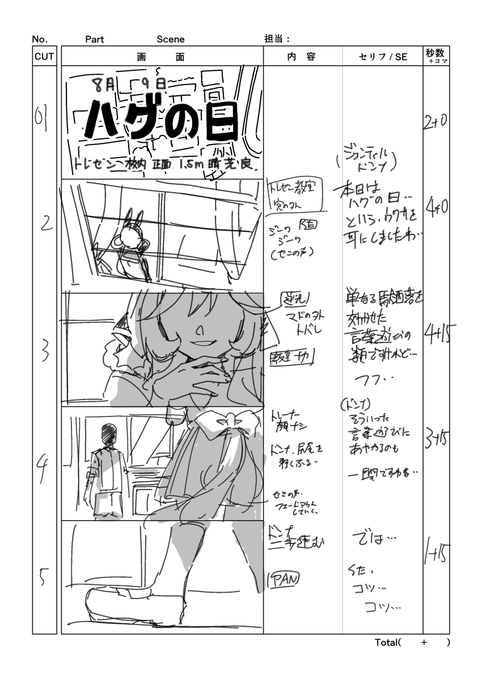 No. Part Scene 担当：
CUT 画面 内容 セリフ/SE 秒数+コマ
01
8月 9日
ハグの日
トレセン 校内 正面 1.5m 晴 芝 良
2+0
2
トレセン教室
窓の外
ジーク
ジーク
(セミの声)
(ジェンティル
ドンナ)
本日は
ハグの日…
という、ウワサを
耳にしましたわ…
4+0
3
逆光
マドのソト
トバし
単なる語呂合わせを
効かせた
言葉遊びの
類ですけれど…
フフ…
4+15
4
トレーナー
顔ナシ
ドンナ、尻尾を
セミの声、
フェードアウト
していく。
(ドンナ)
そういった
言葉遊びに
あやかるのも
一興ですわね…
3+15
5
ドンナ
二歩進む
PAN
では…
コツ…
コツ…
1+15
Total( + )